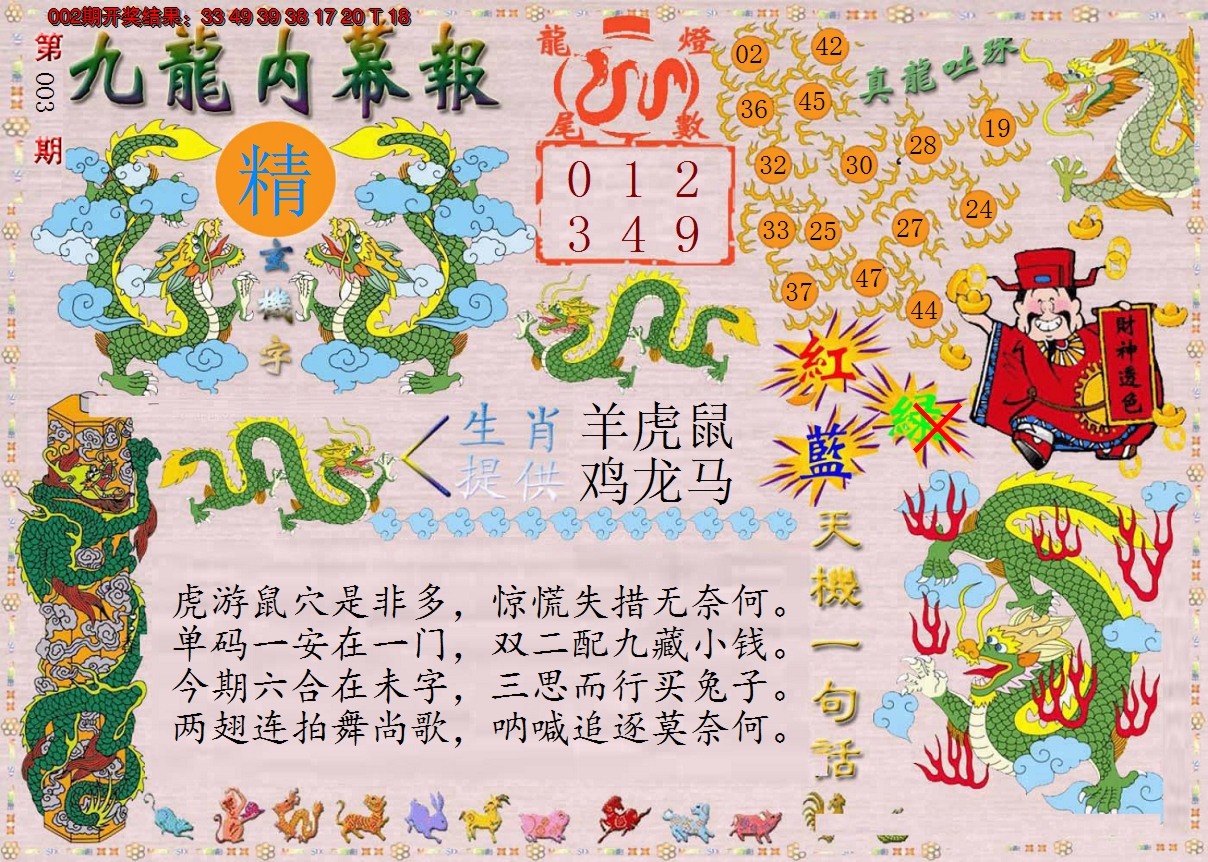 002期开奖结果：33 49 39 38 17 20 T 18
第003期
九龍内幕報
精
玄機字
龍燈尾數
0 1 2
3 4 9
真龍吐珠
02 42
36 45
32 30 28 19
33 25 27 24
37 47 44
紅
綠
藍
財神透色
生肖提供
羊虎鼠
鸡龙马
天機一句話
虎游鼠穴是非多，惊慌失措无奈何。
单码一安在一门，双二配九藏小钱。
今期六合在未字，三思而行买兔子。
两翅连拍舞尚歌，呐喊追逐莫奈何。